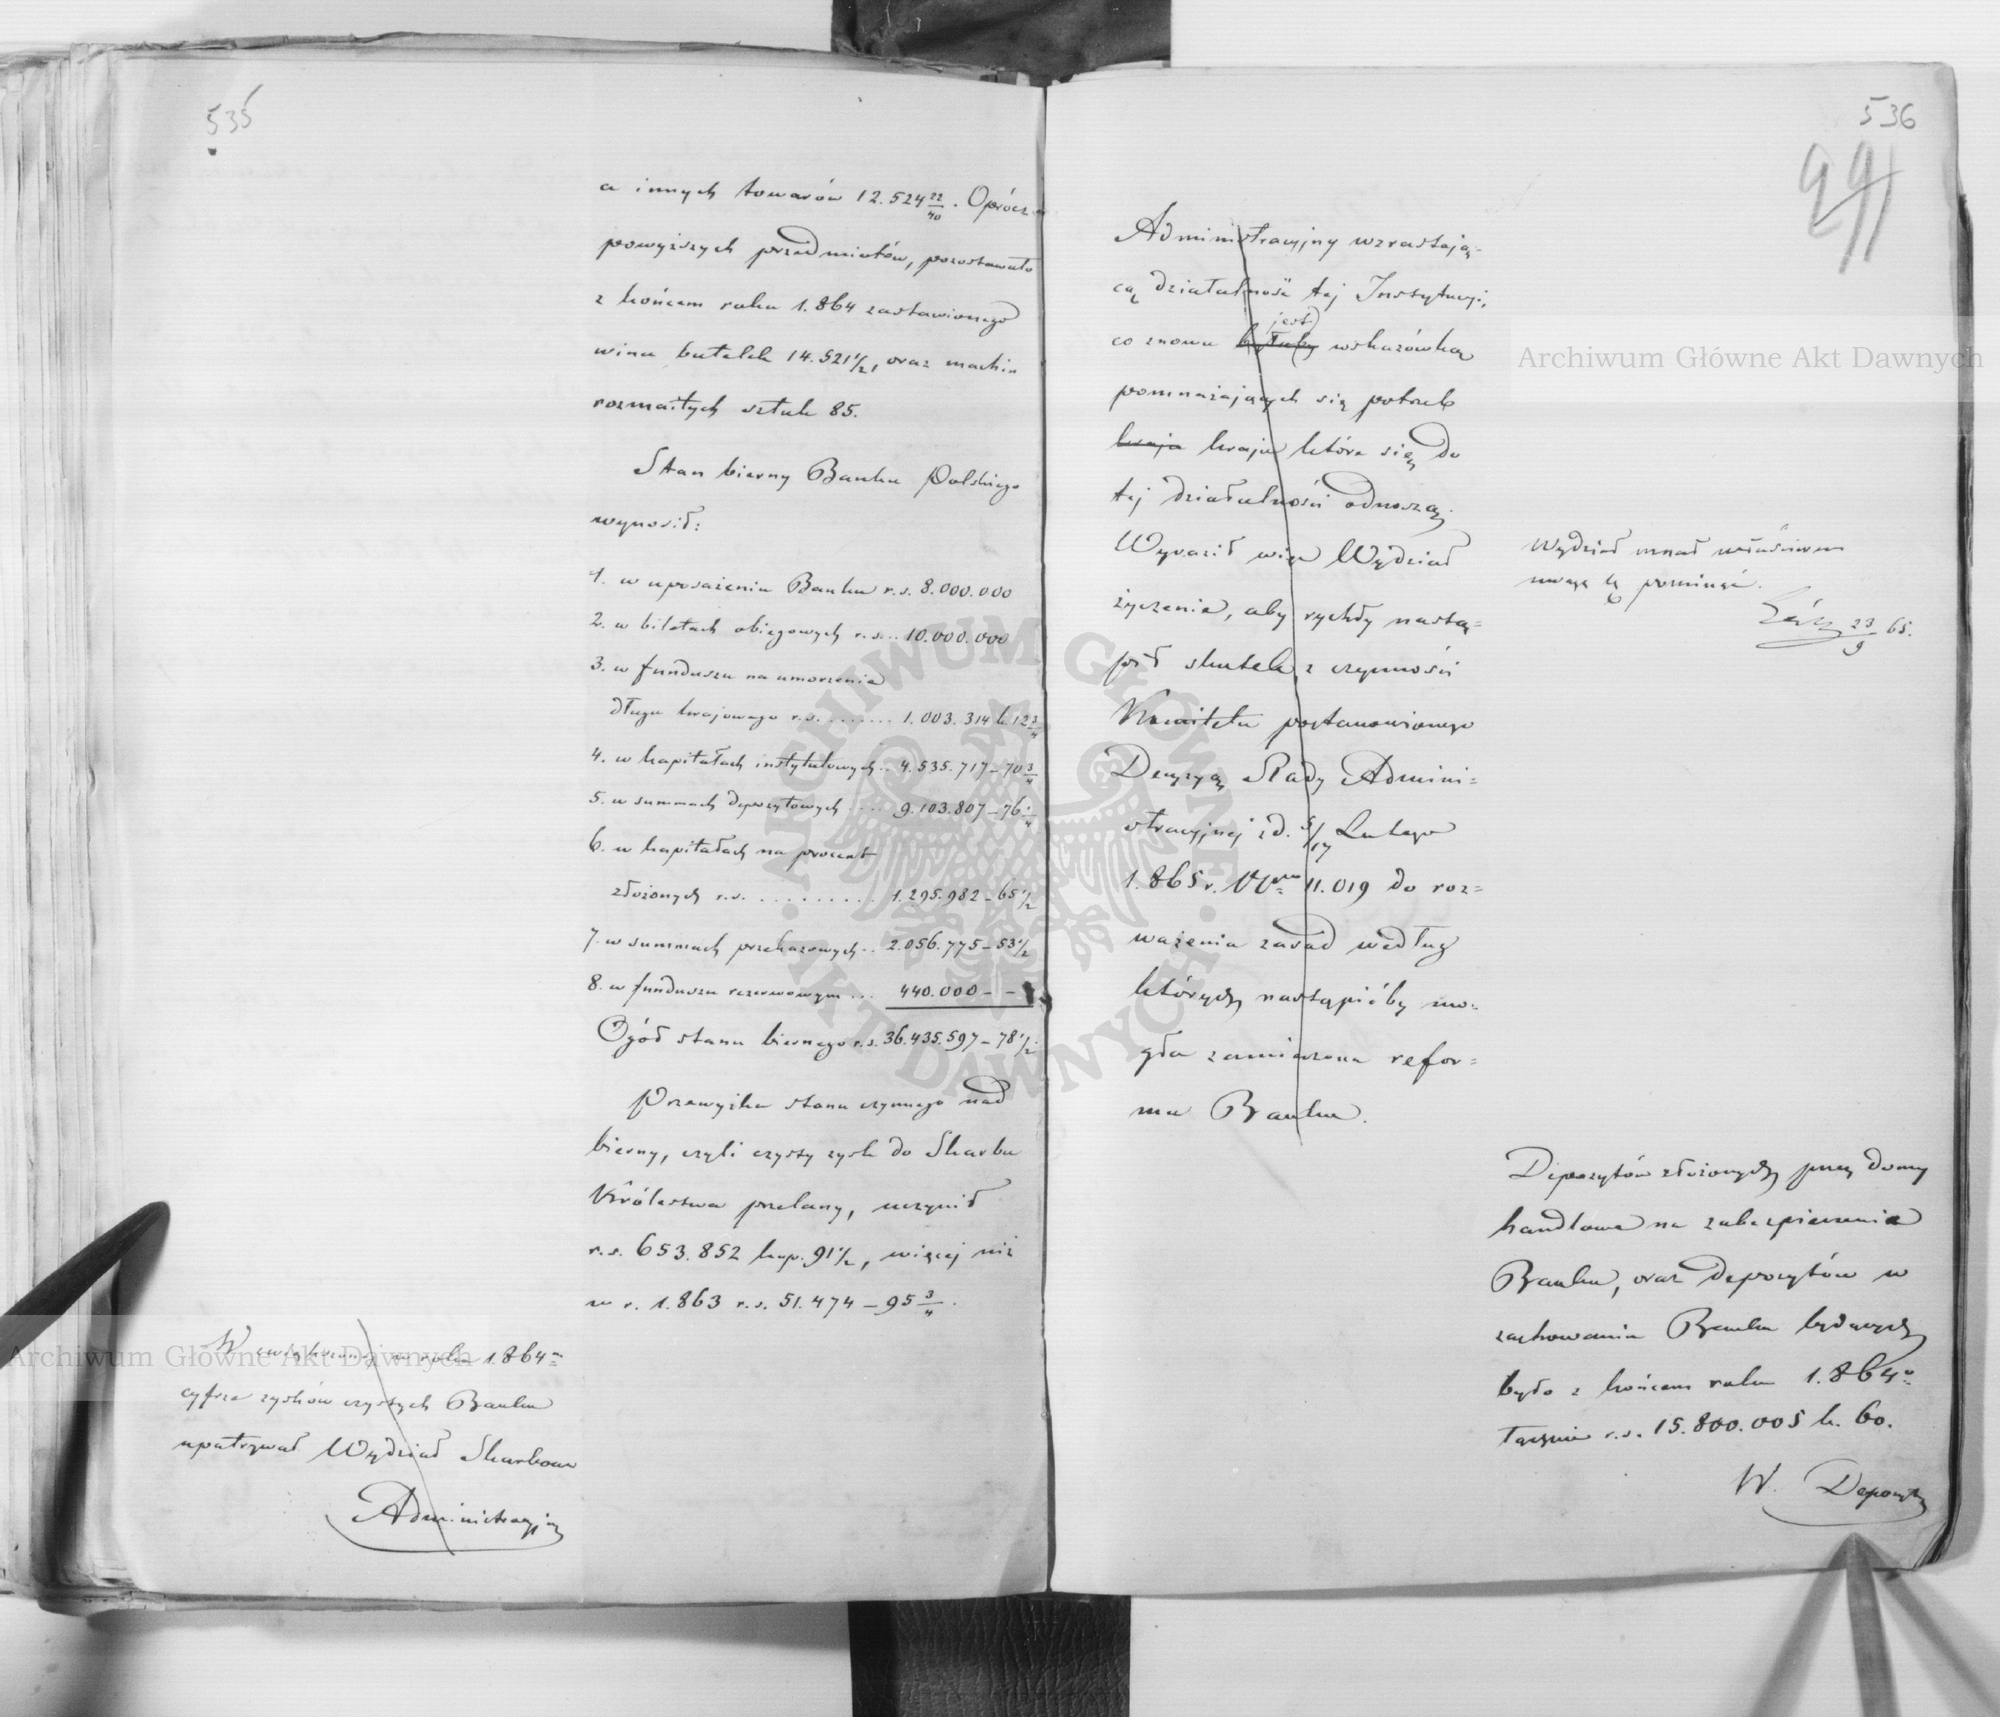 535
a innych towarów 12.524 22/40. Oprócz
powyższych przedmiotów, pozostawało
z końcem roku 1.864 zastawionego
wina butelek 14.521 1/2, oraz machin
rozmaitych sztuk 85.
Stan bierny Banku Polskiego
wynosił:
1. w uposażeniu Banku r.s. 8.000.000
2. w biletach obiegowych r.s... 10.000.000
3. w funduszu na umorzenie
długu krajowego r.s. ........ 1.003.314 k 12 3/4
4. w kapitałach instytutowych.. 4.535.717 – 70 3/4
5. w summach depozytowych .... 9.103.807 – 76 1/4
6. w kapitałach na procent
złożonych r.s. .......... 1.295.982 – 65 1/2
7. w summach przekazowych .. 2.056.775 – 53 1/2
8. w funduszu rezerwowym ... 440.000 – –
Ogół stanu biernego r.s. 36.435.597 – 78 1/2
Przewyżka stanu czynnego nad
bierny, czyli czysty zysk do Skarbu
Królestwa przelany, uczynił
r.s. 653.852 kop. 91 1/2, więcej niż
w r. 1.863 r.s. 51.474 – 95 3/4.
W zwiększonej w roku 1.864m
cyfrze zysków czystych Banku
upatrywał Wydział Skarbowo
Administracyjny
536
291
Administracyjny wzrastają=
cą działalność tej Instytucji,
jest
co znowu byłoby wskazówką
pomnażających się potrzeb
kraja kraju które się do
tej działalności odnoszą.
Wyraził więc Wydział
życzenie, aby rychły nastą=
pił skutek z czynności
Komitetu postanowionego
Decyzyą Rady Admini=
stracyjnej z d. 5/17 Lutego
1.865 r. Nro 11.019 do roz=
ważenia zasad według
których nastąpićby mo=
gła zamierzona refor=
ma Banku.
Wydział uznał właściwem
uwagę tę pominąć.
23/9 65.
Depozytów złożonych przez domy
handlowe na zabezpieczenie
Banku, oraz depozytów w
zachowaniu Banku będących
było z końcem roku 1.864o
łącznie r.s. 15.800.005 k. 60.
W. Depozyty
Archiwum Główne Akt Dawnych
Archiwum Główne Akt Dawnych
ARCHIWUM GŁÓWNE
AKT DAWNYCH